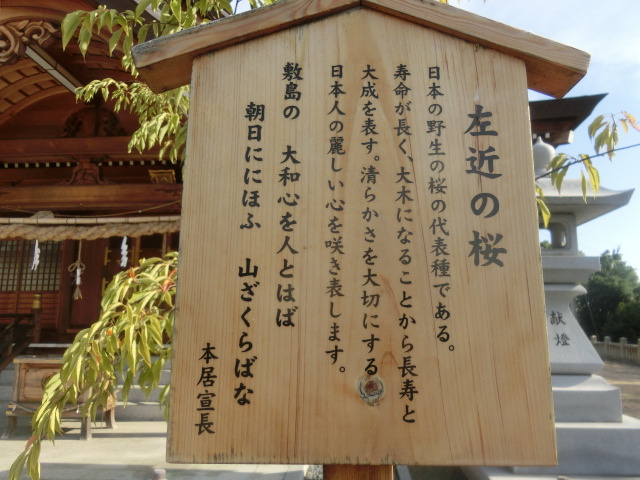 左近の桜
日本の野生の桜の代表種である。
寿命が長く、大木になることから長寿と
大成を表す。清らかさを大切にする
日本人の麗しい心を咲き表します。
敷島の　大和心を人とはば
朝日ににほふ　山ざくらばな
本居宣長
献燈